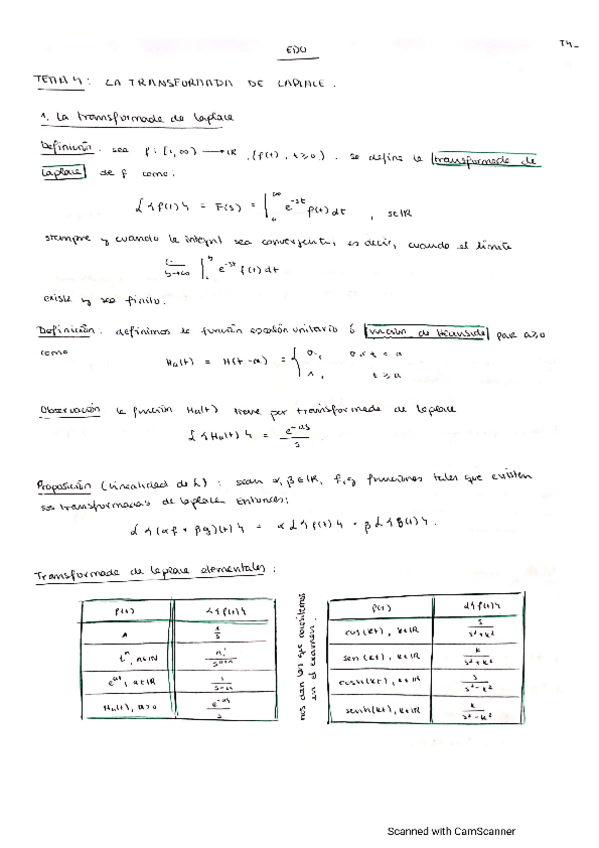 T4_
EDO
TEMA 4: LA TRANSFORMADA DE LAPLACE.
1. La transformada de Laplace
Definición. sea f: [0,∞) → IR, (f(t), t≥0). se define la transformada de
Laplace de f como:
L{f(t)} = F(s) = ∫₀^∞ e^-st f(t) dt , s∈IR
siempre y cuando la integral sea convergente, es decir, cuando el límite
lim b→∞ ∫₀^b e^-st f(t) dt
existe y sea finito.
Definición. definimos la función escalón unitario ó función de Heaviside para a≥0
como Ha(t) = H(t-a) = { 0, 0≤t<a
1, t≥a
Observación la función Ha(t) tiene por transformada de Laplace
L{Ha(t)} = e^-as / s
Proposición (Linealidad de L): sean α, β∈IR, f,g funciones tales que existen
sus transformadas de Laplace. Entonces:
L{(αf + βg)(t)} = αL{f(t)} + βL{g(t)}.
Transformada de Laplace elementales:
f(t) L{f(t)}
1 1/s
t^n, n∈IN n!/s^n+1
e^at, a∈IR 1/s-a
Ha(t), a>0 e^-as/s
nos dan las que necesitemos
en el examen.
f(t) L{f(t)}
cos(kt), k∈IR s/s²+k²
sen(kt), k∈IR k/s²+k²
cosh(kt), k∈IR s/s²-k²
senh(kt), k∈IR k/s²-k²
Scanned with CamScanner